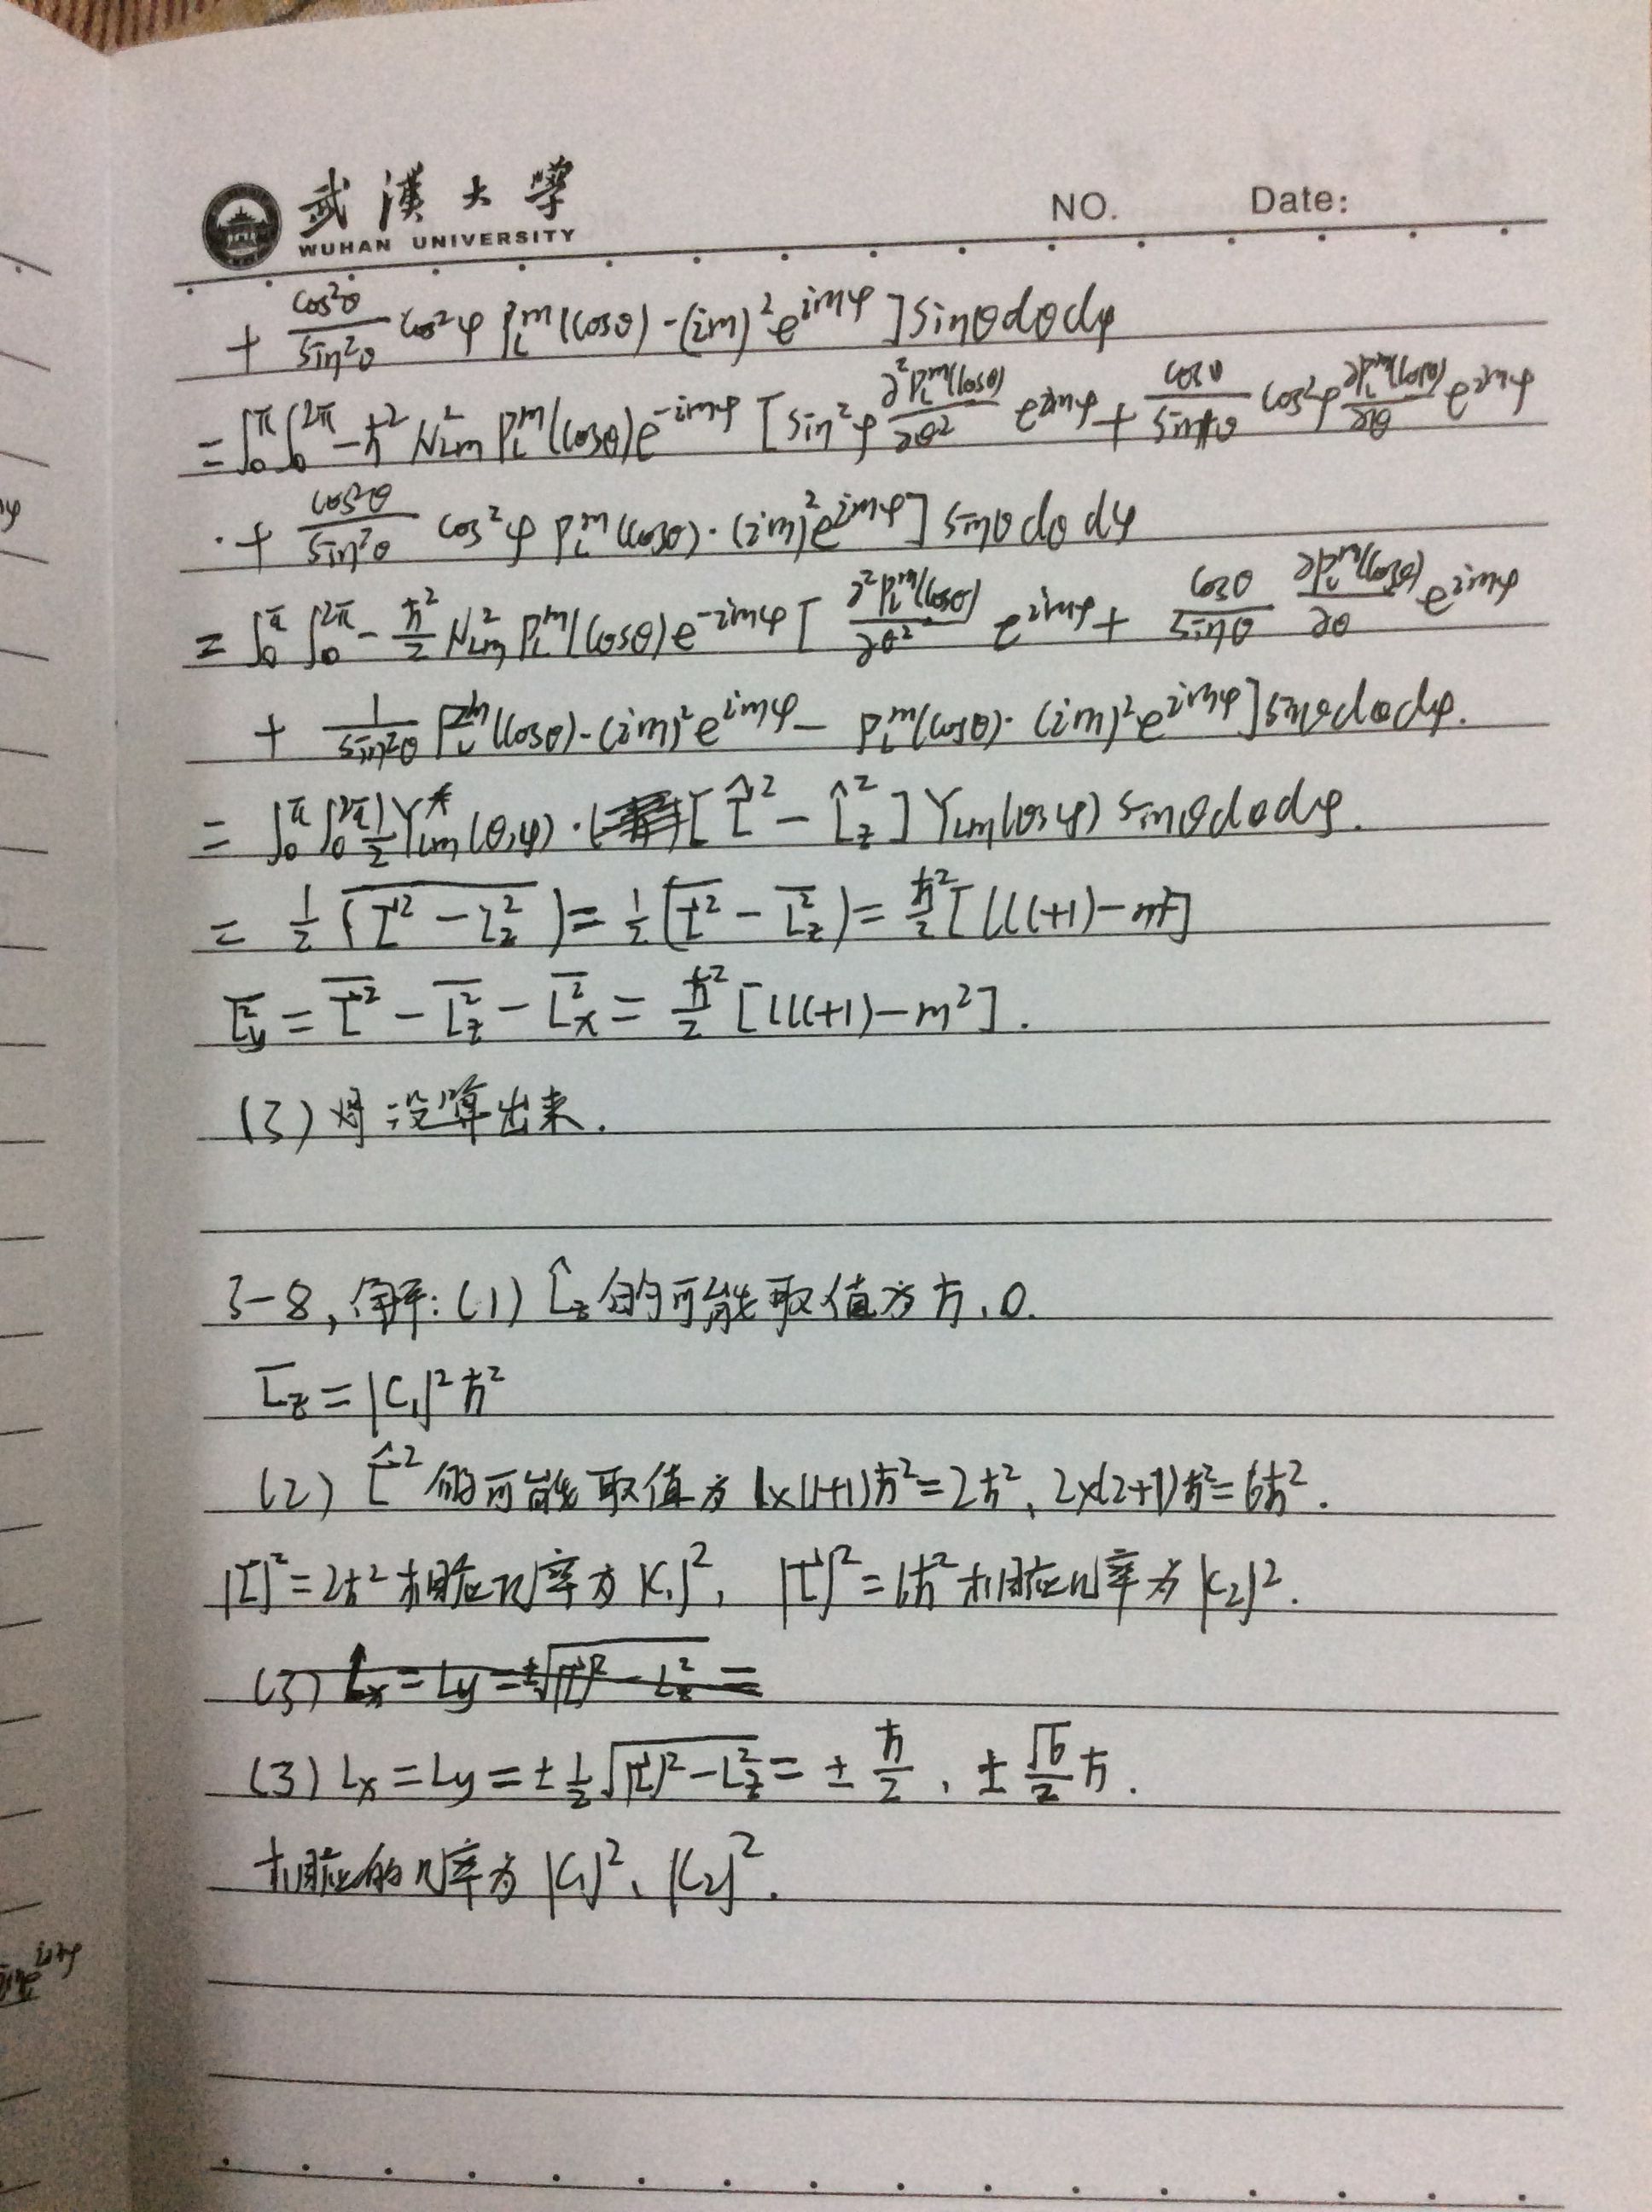 武漢大學
WUHAN UNIVERSITY
NO. Date:
+ cos²θ/sin²θ cos²φ P_l^m(cosθ)·(im)² e^{imφ}] sinθdθdφ
= ∫₀^π ∫₀^{2π} -ħ² N_{lm}² P_l^m(cosθ)e^{-imφ} [sin²φ ∂²P_l^m(cosθ)/∂θ² e^{imφ} + cosθ/sinθ cos²φ ∂P_l^m(cosθ)/∂θ e^{imφ}
+ cos²θ/sin²θ cos²φ P_l^m(cosθ)·(im)² e^{imφ}] sinθdθdφ
= ∫₀^π ∫₀^{2π} -ħ²/2 N_{lm}² P_l^m(cosθ)e^{-imφ} [∂²P_l^m(cosθ)/∂θ² e^{imφ} + cosθ/sinθ ∂P_l^m(cosθ)/∂θ e^{imφ}
+ 1/sin²θ P_l^m(cosθ)·(im)² e^{imφ} - P_l^m(cosθ)·(im)² e^{imφ}] sinθdθdφ.
= ∫₀^π ∫₀^{2π} 1/2 Y*_{lm}(θ,φ)·[L̂² - L̂_z²] Y_{lm}(θ,φ) sinθdθdφ.
= 1/2 (\overline{L² - L_z²}) = 1/2 (\overline{L²} - \overline{L_z²}) = ħ²/2 [l(l+1) - m²]
\overline{L_y²} = \overline{L²} - \overline{L_z²} - \overline{L_x²} = ħ²/2 [l(l+1) - m²].
(3) 没算出来.
3-8, 解: (1) L̂_z 的可能取值为 ħ、0.
\overline{L_z} = |C₁|²ħ²
(2) L̂² 的可能取值为 1×(1+1)ħ² = 2ħ²、2×(2+1)ħ² = 6ħ².
|L|² = 2ħ² 相应几率为 |C₁|², |L|² = 6ħ² 相应几率为 |C₂|².
(3) Lx = Ly = ±√(|L|² - L_z²) =
(3) Lx = Ly = ± 1/2 √(|L|² - L_z²) = ± ħ/2、± √6/2 ħ.
相应的几率为 |C₁|²、|C₂|².